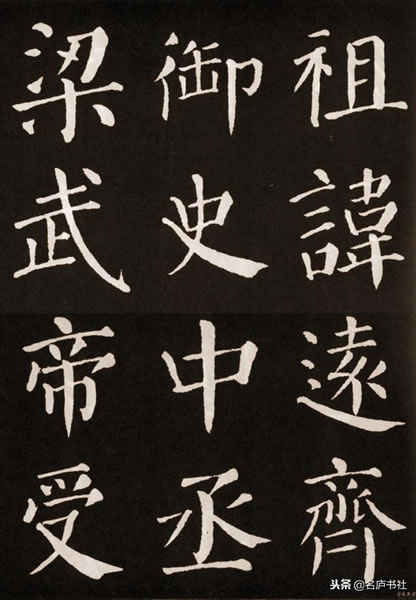 祖諱遠齊
御史中丞
梁武帝受
头条@名庐书社